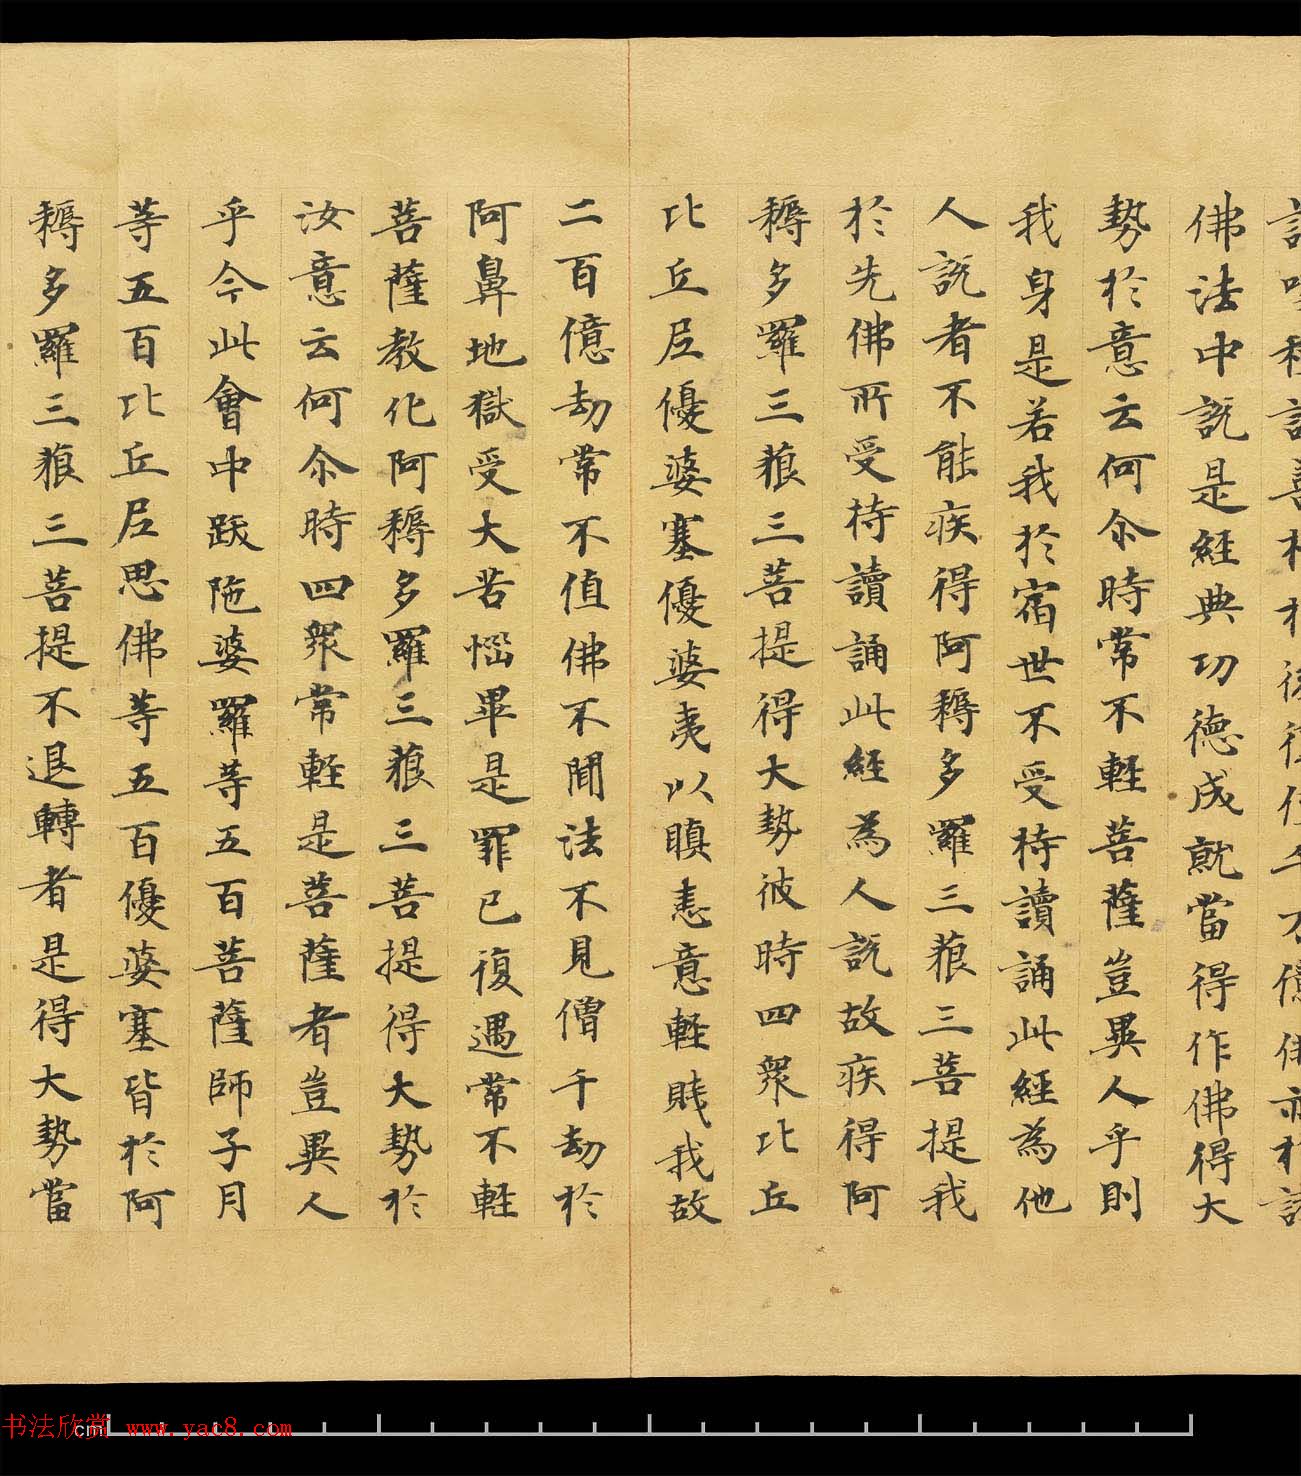 佛法中說是經典功德成就當得作佛得大
勢於意云何尒時常不輕菩薩豈異人乎則
我身是若我於宿世不受持讀誦此經為他
人說者不能疾得阿耨多羅三藐三菩提我
於先佛所受持讀誦此經為人說故疾得阿
耨多羅三藐三菩提得大勢彼時四眾比丘
比丘尼優婆塞優婆夷以瞋恚意輕賤我故
二百億劫常不值佛不聞法不見僧千劫於
阿鼻地獄受大苦惱畢是罪已復遇常不輕
菩薩教化阿耨多羅三藐三菩提得大勢於
汝意云何尒時四眾常輕是菩薩者豈異人
乎今此會中跋陁婆羅等五百菩薩師子月
等五百比丘尼思佛等五百優婆塞皆於阿
耨多羅三藐三菩提不退轉者是得大勢當
书法欣赏 www.yac8.com
cm